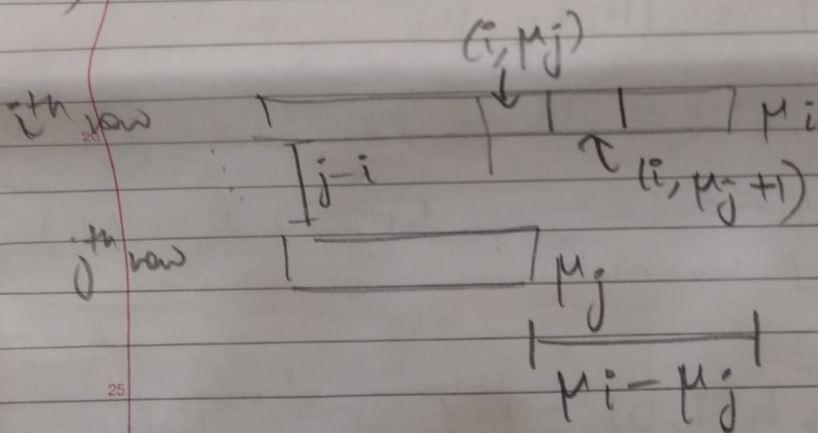 (i, μj)
ith row μi
20
j-i
(i, μj+1)
jth row μj
μi - μj
25